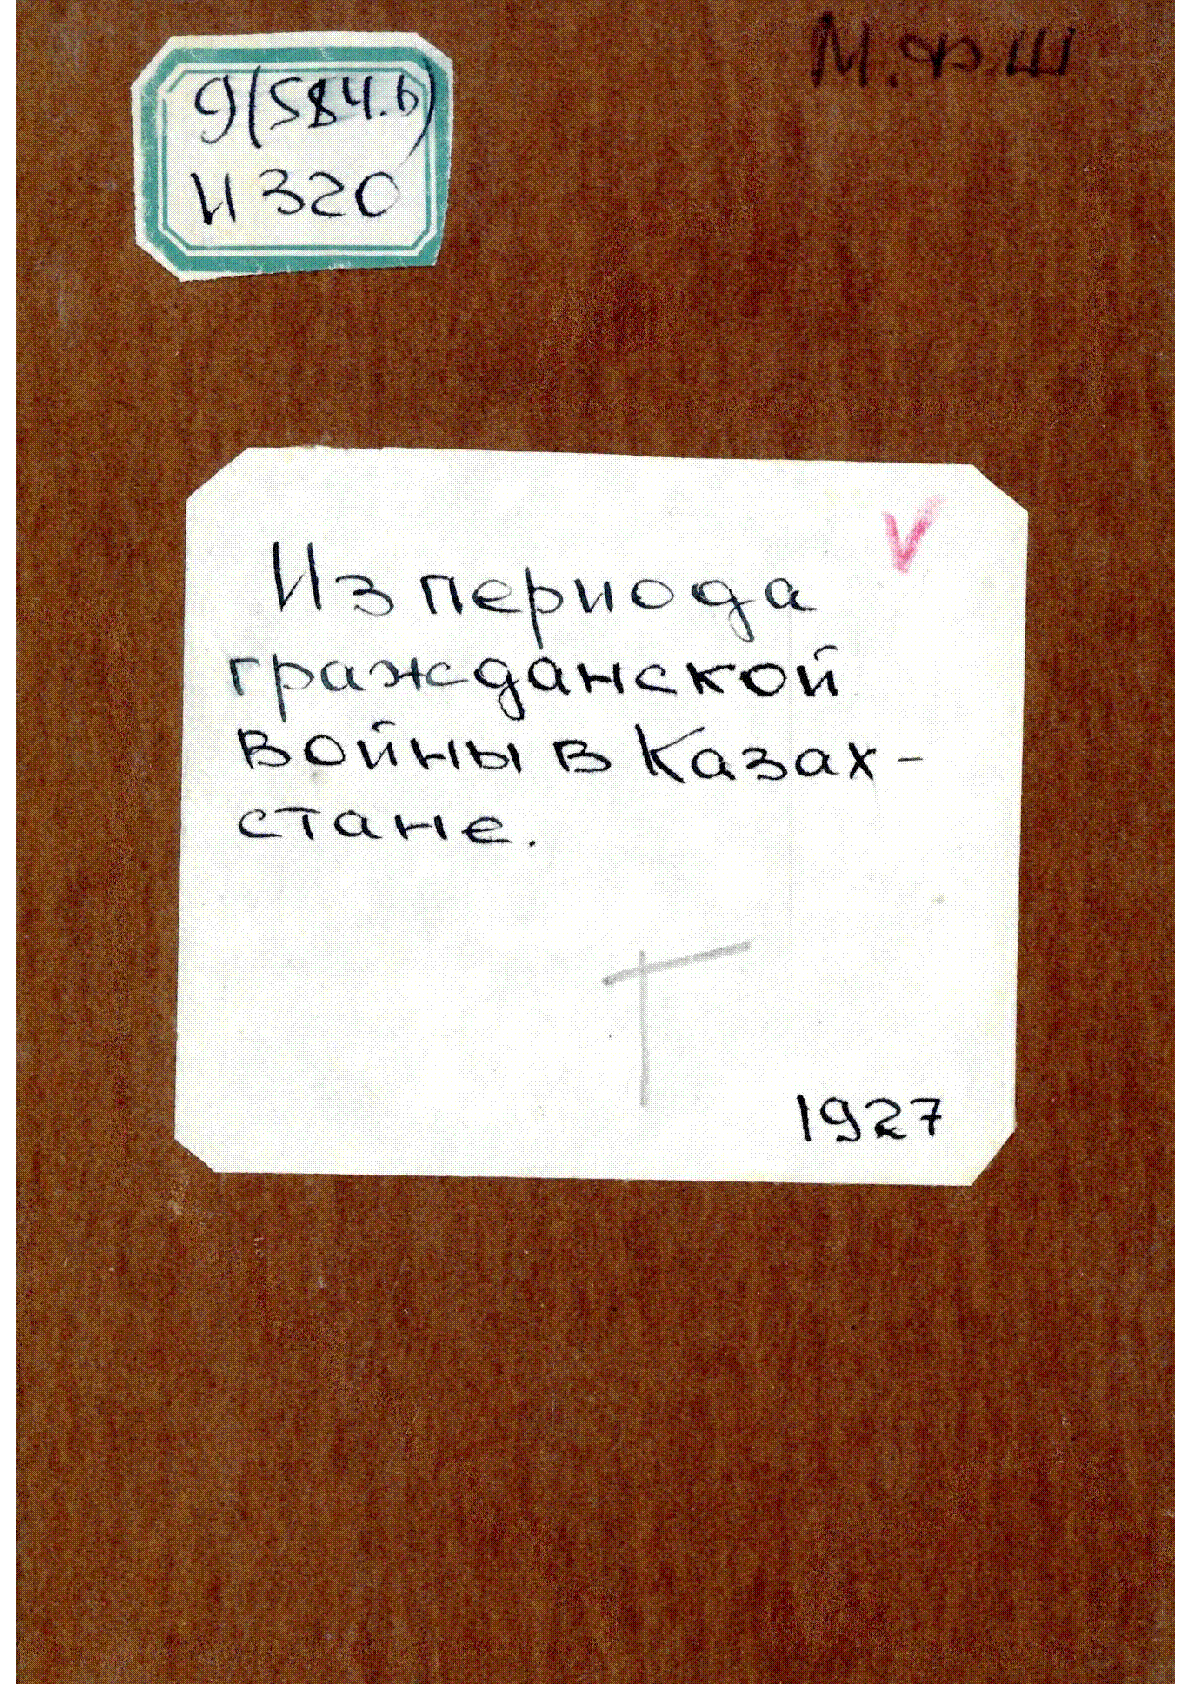 М.Ф.Ш
9(584.6)
И 320
V
Из периода
гражданской
войны в Казах-
стане.
Т
1927